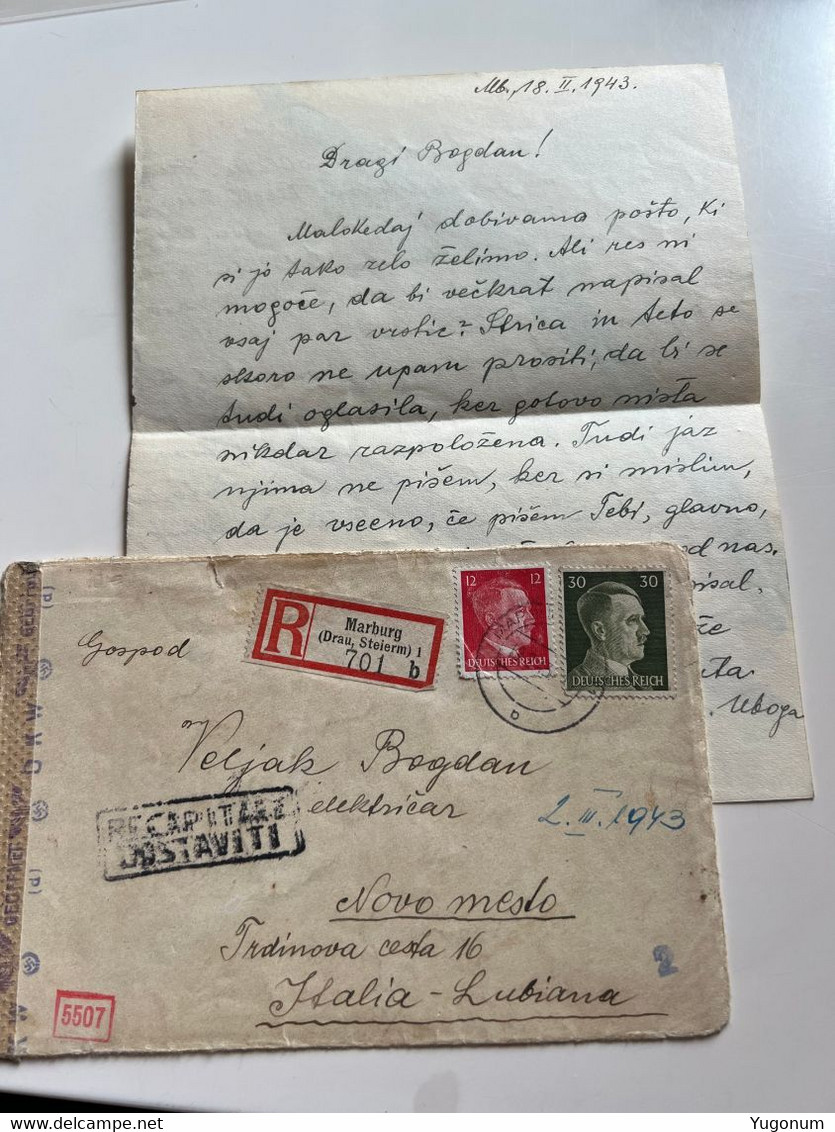 Mb., 18. II. 1943.
Dragi Bogdan!
Malokedaj dobivamo pošto, ki
si jo tako zelo želimo. Ali res ni
mogoče, da bi večkrat napisal
vsaj par vrstic? Strica in teto se
skoro ne upam prositi, da bi se
tudi oglasila, ker gotovo nista
nikdar razpoložena. Tudi jaz
njima ne pišem, ker si mislim,
da je vseeno, če pišem Tebi, glavno,
od nas.
že
Uboga
R
Marburg
(Drau, Steierm) 1
701 b
12 12
DEUTSCHES REICH
30 30
DEUTSCHES REICH
Gospod
Veljak Bogdan
električar
RECAPITARE
DOSTAVITI
2. III. 1943
Novo mesto
Trdinova cesta 16
Italia - Lubiana
2
5507
Yugonum